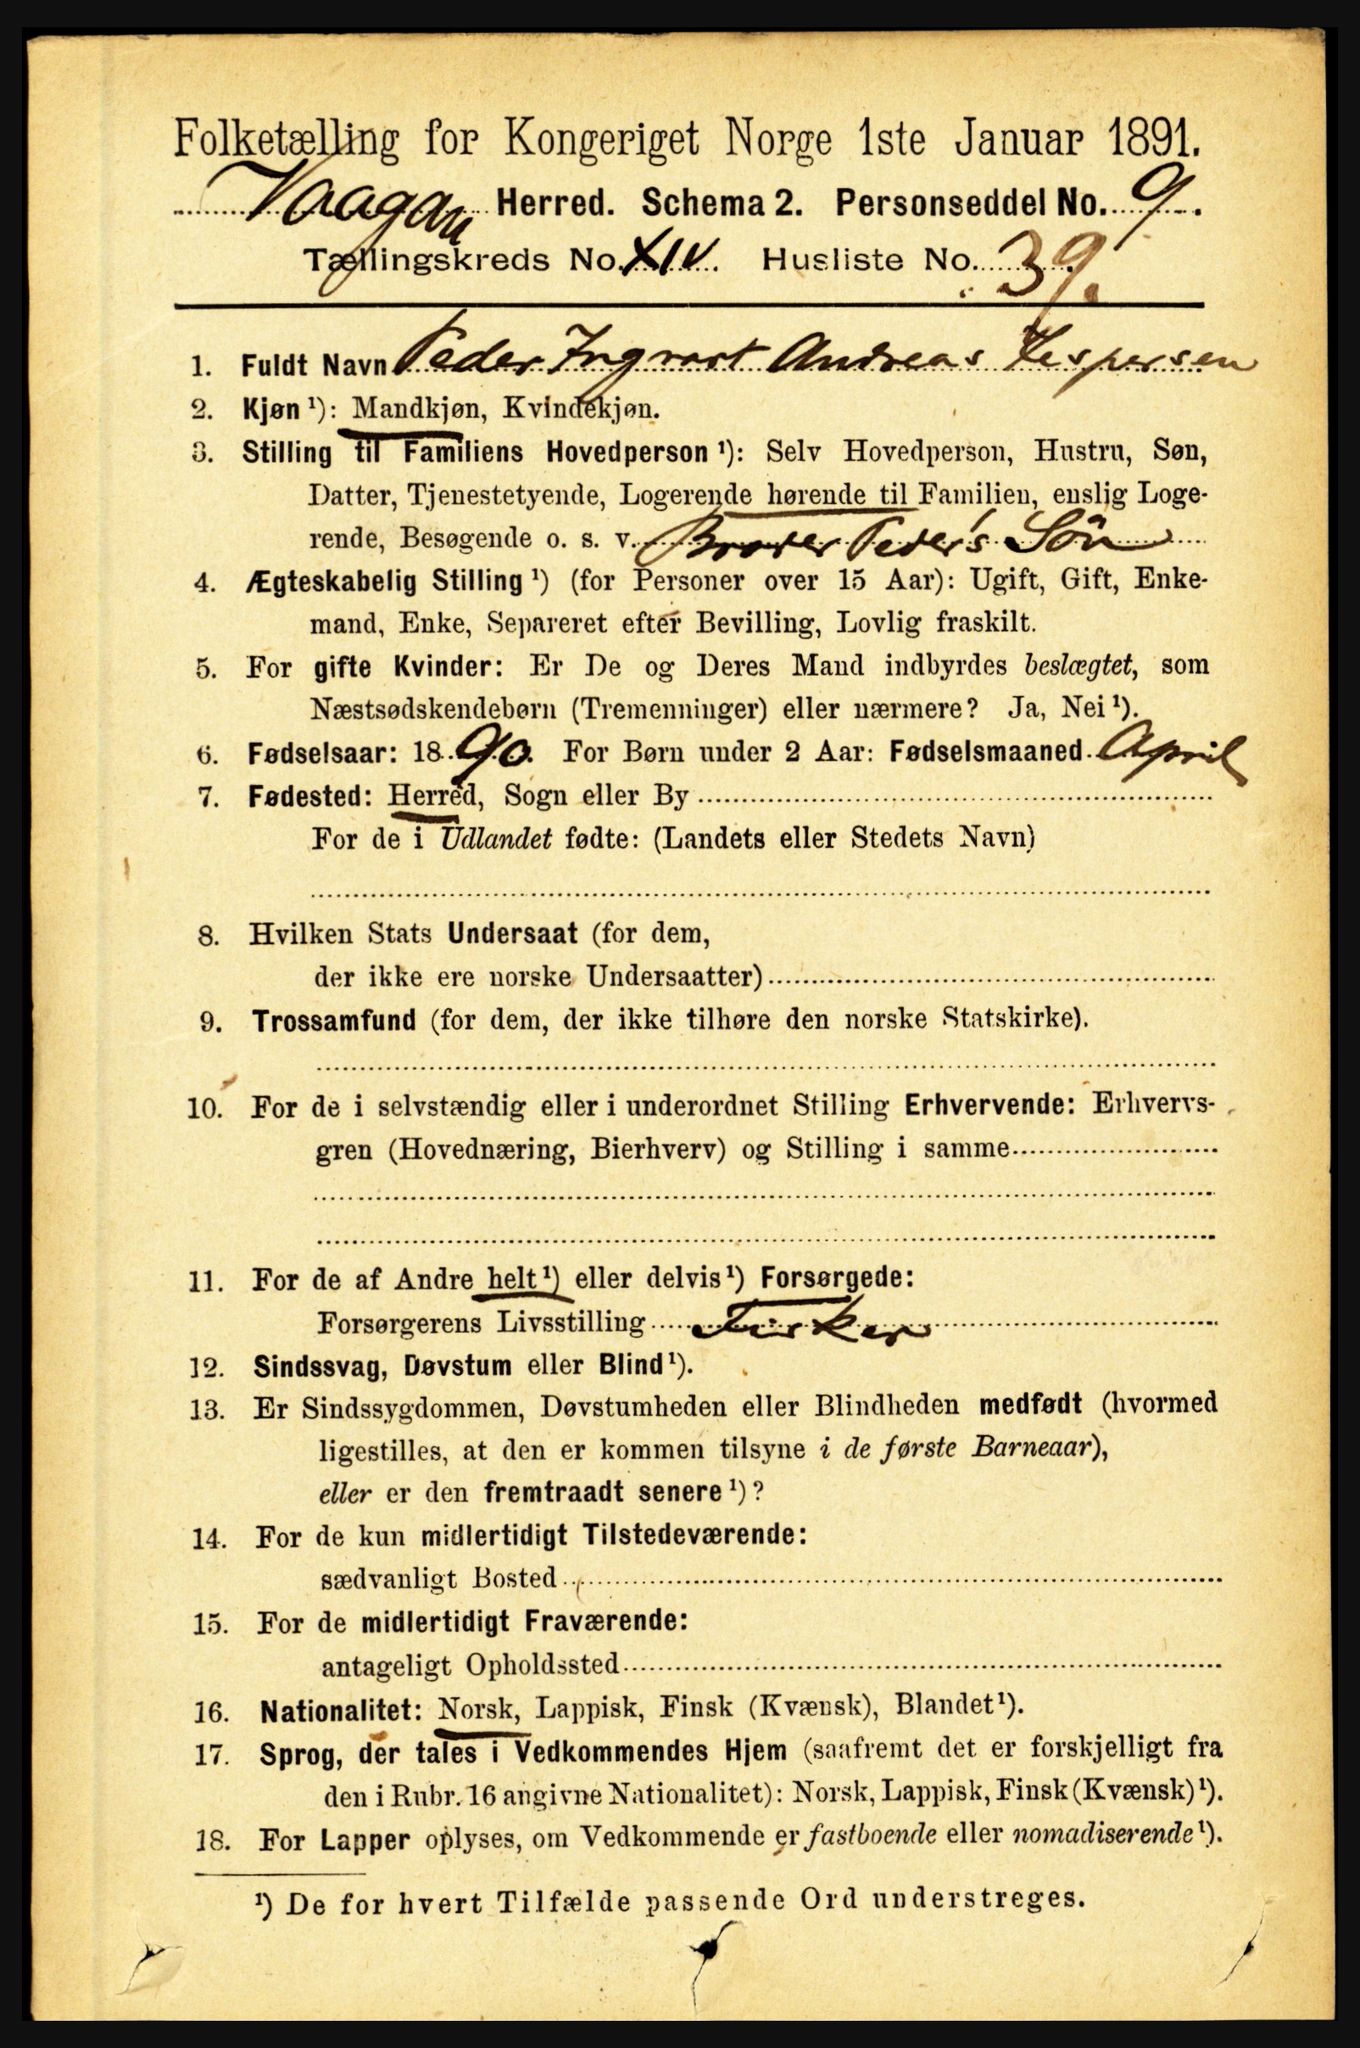 Folketælling for Kongeriget Norge 1ste Januar 1891.
Vaagan Herred. Schema 2. Personseddel No. 9.
Tællingskreds No. XIV. Husliste No. 39.
1. Fuldt Navn Peder Ingvart Andreas Jespersen
2. Kjøn ¹): Mandkjøn, Kvindekjøn.
3. Stilling til Familiens Hovedperson ¹): Selv Hovedperson, Hustru, Søn,
Datter, Tjenestetyende, Logerende hørende til Familien, enslig Loge-
rende, Besøgende o. s. v. Broder Peder's Sön
4. Ægteskabelig Stilling ¹) (for Personer over 15 Aar): Ugift, Gift, Enke-
mand, Enke, Separeret efter Bevilling, Lovlig fraskilt.
5. For gifte Kvinder: Er De og Deres Mand indbyrdes beslægtet, som
Næstsødskendebørn (Tremenninger) eller nærmere? Ja, Nei ¹).
6. Fødselsaar: 1890. For Børn under 2 Aar: Fødselsmaaned April
7. Fødested: Herred, Sogn eller By
For de i Udlandet fødte: (Landets eller Stedets Navn)
8. Hvilken Stats Undersaat (for dem,
der ikke ere norske Undersaatter)
9. Trossamfund (for dem, der ikke tilhøre den norske Statskirke).
10. For de i selvstændig eller i underordnet Stilling Erhvervende: Erhvervs-
gren (Hovednæring, Bierhverv) og Stilling i samme
11. For de af Andre helt ¹) eller delvis ¹) Forsørgede:
Forsørgerens Livsstilling Fisker
12. Sindssvag, Døvstum eller Blind ¹).
13. Er Sindssygdommen, Døvstumheden eller Blindheden medfødt (hvormed
ligestilles, at den er kommen tilsyne i de første Barneaar),
eller er den fremtraadt senere ¹)?
14. For de kun midlertidigt Tilstedeværende:
sædvanligt Bosted
15. For de midlertidigt Fraværende:
antageligt Opholdssted
16. Nationalitet: Norsk, Lappisk, Finsk (Kvænsk), Blandet ¹).
17. Sprog, der tales i Vedkommendes Hjem (saafremt det er forskjelligt fra
den i Rubr. 16 angivne Nationalitet): Norsk, Lappisk, Finsk (Kvænsk) ¹).
18. For Lapper oplyses, om Vedkommende er fastboende eller nomadiserende ¹).
¹) De for hvert Tilfælde passende Ord understreges.